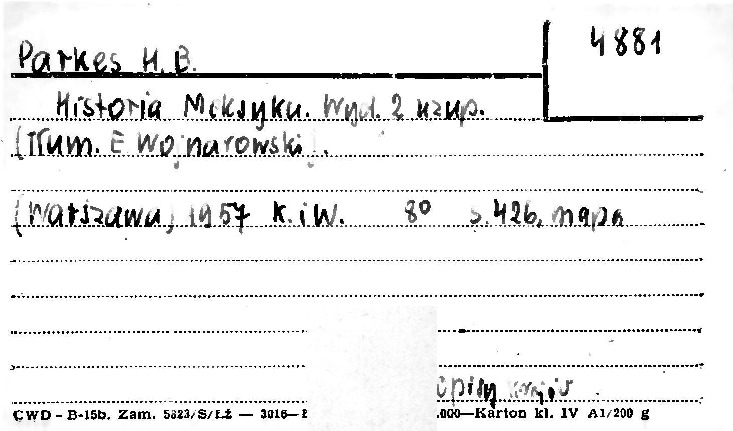 4881
Parkes H. B.
Historia Meksyku. Wyd. 2 uzup.
[Tłum. E Wojnarowski].
[Warszawa] 1957 K. i W. 8° s. 426, mapa
opisy
CWD - B-15b. Zam. 5823/S/ŁŻ — 3016— .000—Karton kl. IV A1/200 g